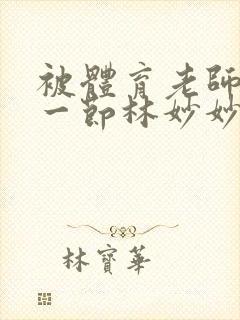 被體育老師
一節林妙妙
林寶華